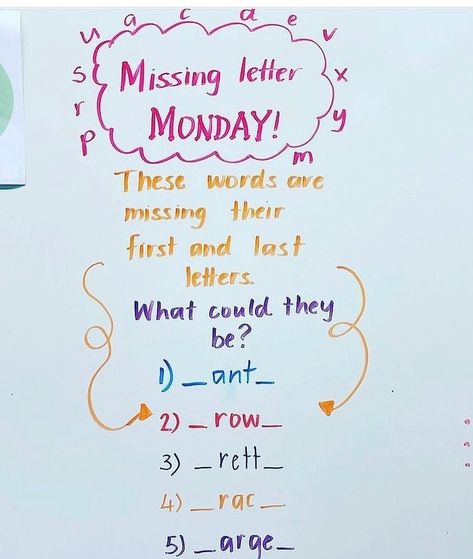 u a c a e v
s x
r y
p m
Missing letter
MONDAY!
These words are
missing their
first and last
letters.
What could they
be?
1) _ant_
2) _row_
3) _rett_
4) _rac_
5) _arge_